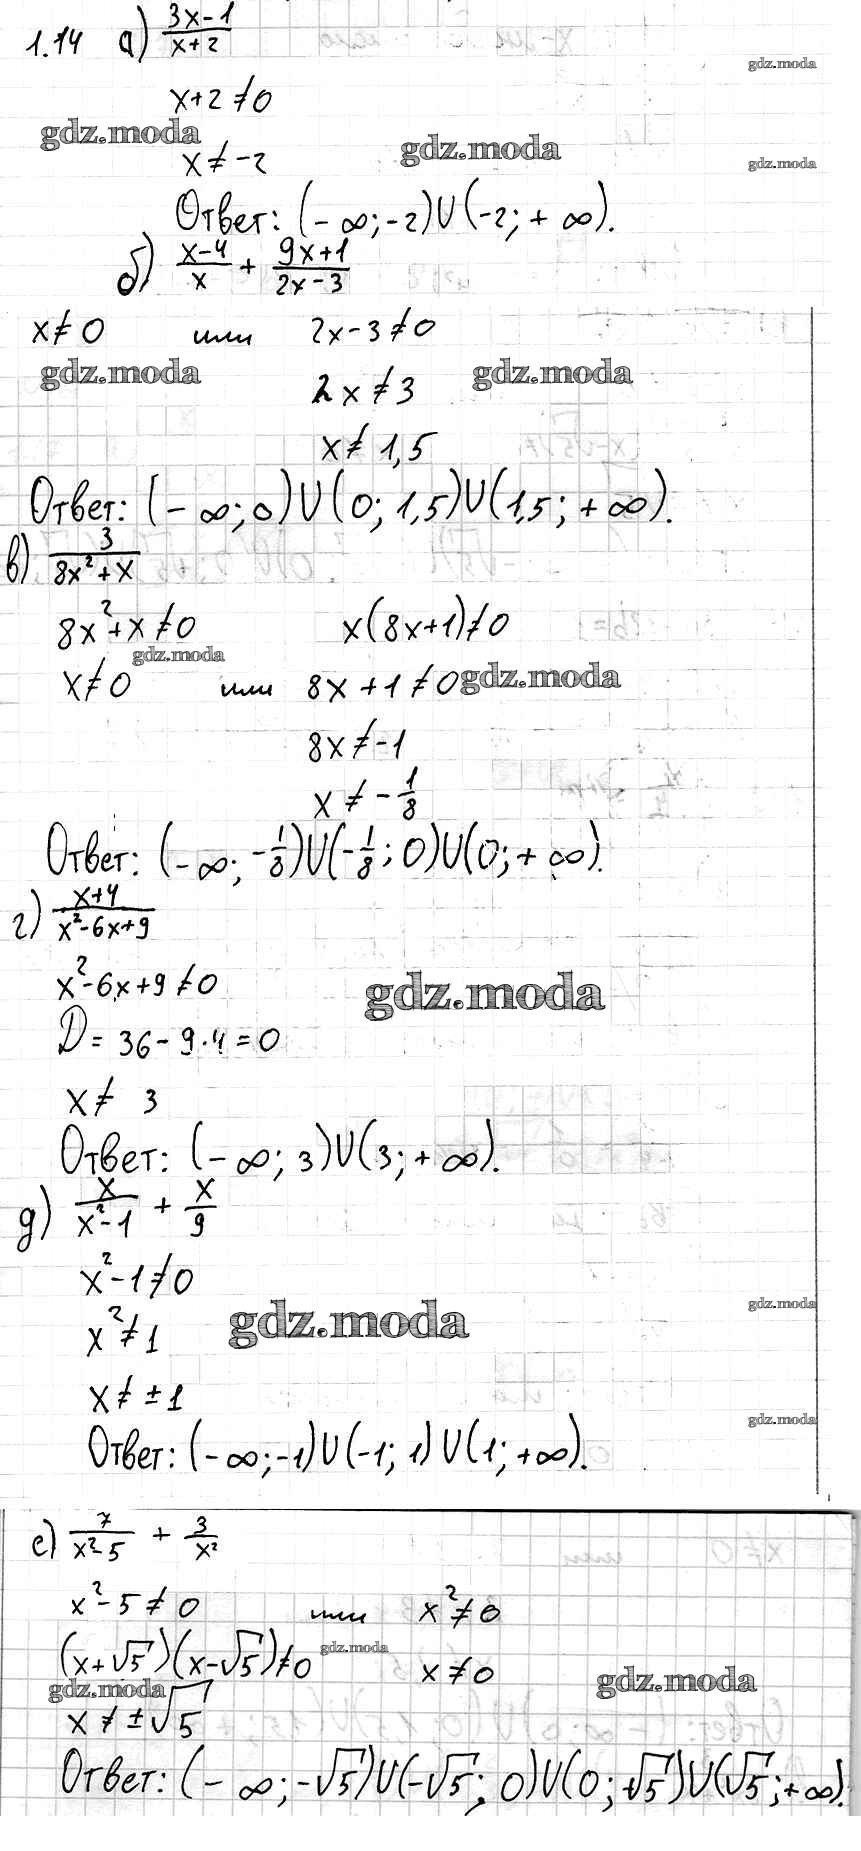 1.14 а) (3x-1)/(x+2)
gdz.moda
x+2≠0
gdz.moda
gdz.moda
gdz.moda
x≠-2
Ответ: (-∞;-2)U(-2;+∞).
б) (x-4)/x + (9x+1)/(2x-3)
x≠0 или 2x-3≠0
gdz.moda
gdz.moda
2x≠3
x≠1,5
Ответ: (-∞;0)U(0;1,5)U(1,5;+∞).
в) 3/(8x²+x)
8x²+x≠0 x(8x+1)≠0
gdz.moda
x≠0 или 8x+1≠0
gdz.moda
8x≠-1
x≠-1/8
Ответ: (-∞;-1/8)U(-1/8;0)U(0;+∞).
г) (x+4)/(x²-6x+9)
x²-6x+9≠0
gdz.moda
D=36-9·4=0
x≠ 3
Ответ: (-∞;3)U(3;+∞).
д) x/(x²-1) + x/9
x²-1≠0
gdz.moda
gdz.moda
x²≠1
x≠±1
gdz.moda
Ответ: (-∞;-1)U(-1;1)U(1;+∞).
е) 7/(x²-5) + 3/x²
x²-5≠0 или x²≠0
gdz.moda
(x+√5)(x-√5)≠0 x≠0
gdz.moda
gdz.moda
x≠±√5
Ответ: (-∞;-√5)U(-√5;0)U(0;+√5)U(√5;+∞).